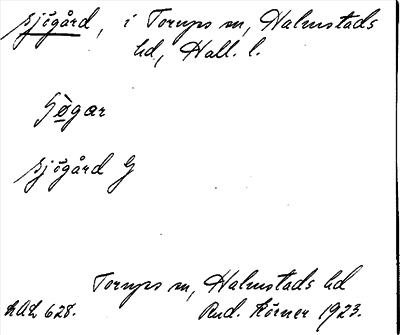 sjögård, i Torups sn, Halmstads
hd, Hall. l.
sjögård G
Torups sn, Halmstads hd
LAL 628.
Rud. Körner 1923.